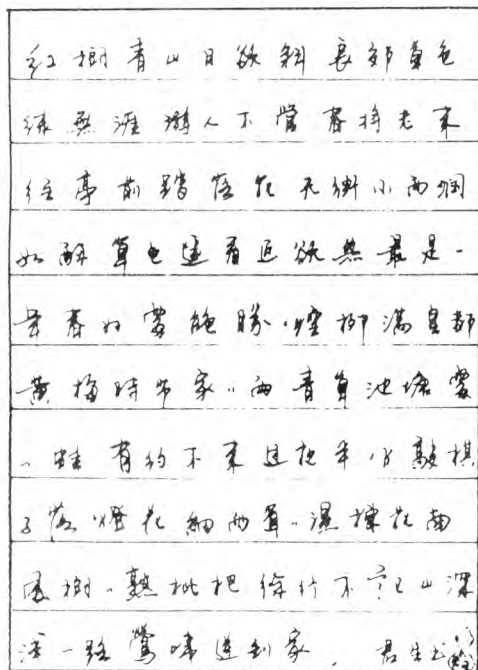 红树青山日欲斜长郊草色
绿无涯游人不管春将老来
往亭前踏落花天街小雨润
如酥草色遥看近却无最是一
年春好处绝胜烟柳满皇都
黄梅时节家〃雨青草池塘处
〃蛙有约不来过夜半闲敲棋
子落灯花细雨茸〃湿楝花南
风树〃熟枇杷徐行不记山深
浅一路莺啼送到家 君生书